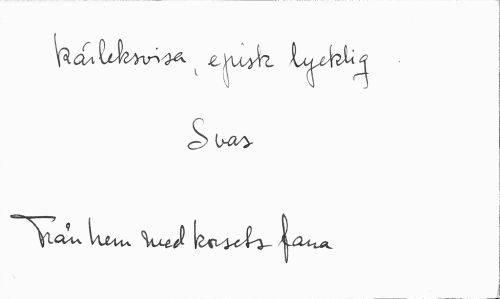 kärleksvisa, episk lycklig
Svas
Från hem med korsets fana